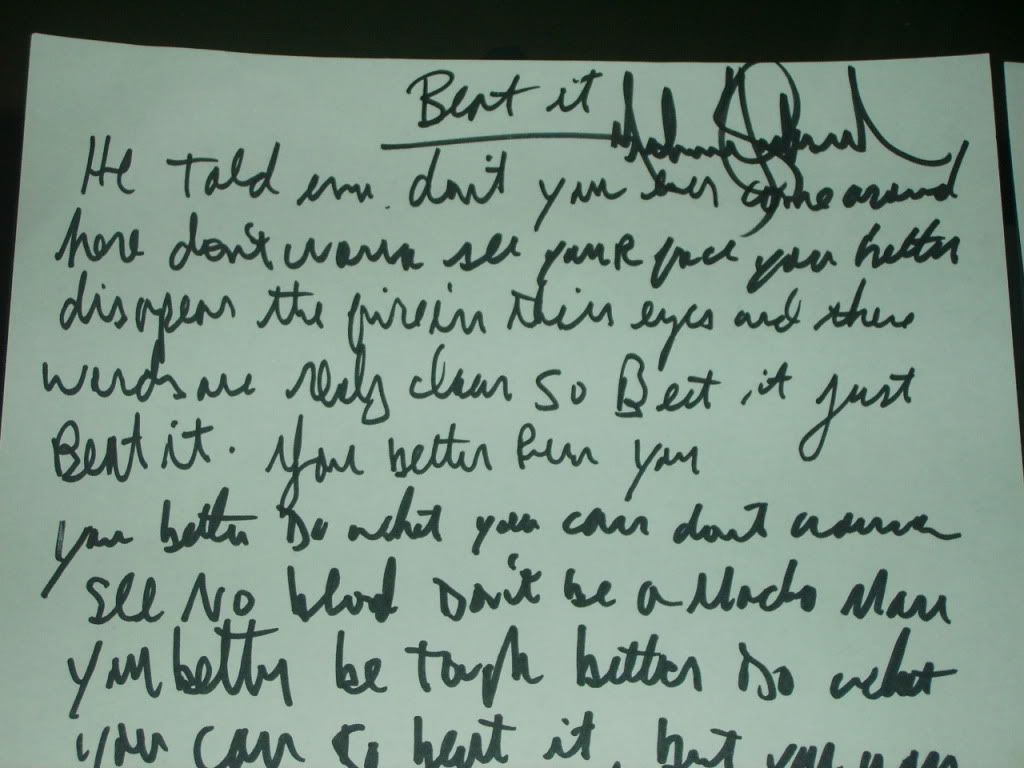 Beat it Michael Jackson
He Told em. don't you ever come around
here don't wanna see your face you better
disapear the fire in their eyes and there
words are really clear So Beat it just
Beat it. You better Run you
you better Do what you can dont wanna
see No blood Don't be a Macho Man
you better be Tough better Do what
you can so beat it, but you wan